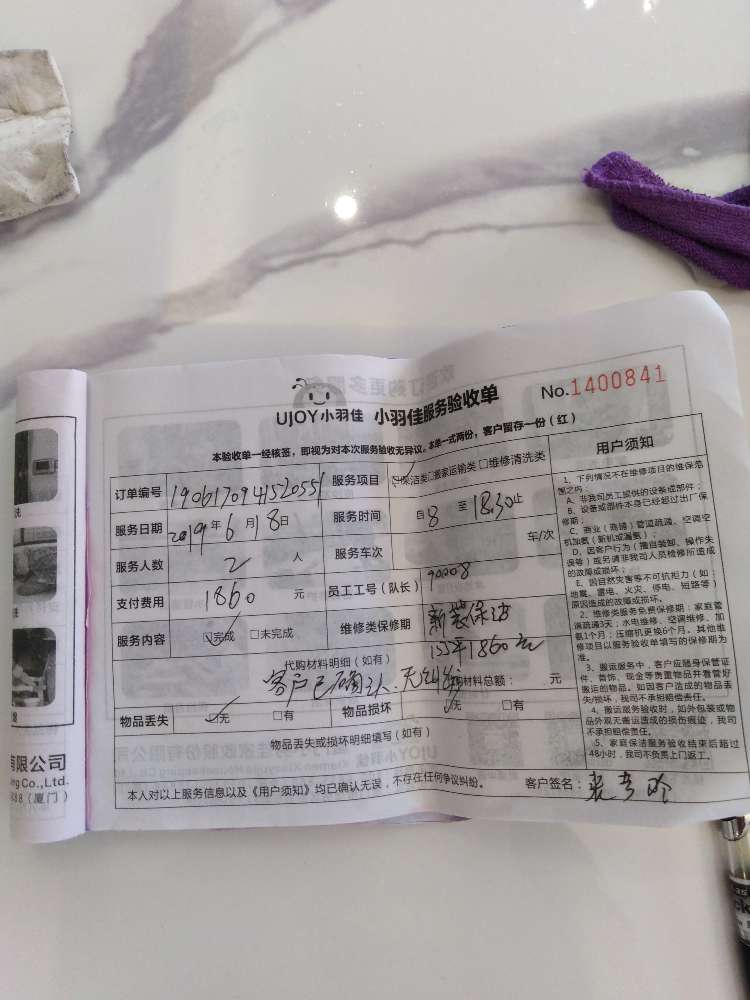 UJOY小羽佳 小羽佳服务验收单 No.1400841
本验收单一经核签，即视为对本次服务验收无异议。本单一式两份，客户留存一份（红）
订单编号 190617094152055 服务项目 ☑保洁类□搬家运输类□维修清洗类
服务日期 2019年6月18日 服务时间 自8至18:30止
服务人数 2 人 服务车次 车/次
支付费用 1860 元 员工工号（队长） 90008
服务内容 ☑完成 □未完成 维修类保修期 新装保洁
155平1860元
代购材料明细（如有） 材料总额： 元
客户已确认.无纠纷
物品丢失 ☑无 □有 物品损坏 ☑无 □有
物品丢失或损坏明细填写（如有）
本人对以上服务信息以及《用户须知》均已确认无误，不存在任何争议纠纷。 客户签名：
用户须知
1、下列情况不在维修项目的维保范
围之内：
A、非我司员工提供的设备或部件；
B、设备或部件本身已经超过出厂保
修期；
C、商业（商铺）管道疏通、空调空
机加氨（新机或漏氨）；
D、因客户行为（擅自装卸、操作失
误等）或另请非我司人员检修所造成
的故障或损坏；
E、因自然灾害等不可抗拒力（如：
地震、雷电、火灾、停电、短路等）
原因造成的故障或损坏。
2、维修类服务免费保修期：家庭管
道疏通3天；水电维修、空调维修、加
氨1个月；压缩机更换6个月。其他维
修项目以服务验收单填写的保修期为
准。
3、搬运服务中，客户应随身保管证
件、首饰、现金等贵重物品并看管好
搬运的物品。如因客户造成的物品丢
失/损坏，我司不承担赔偿责任。
4、搬运服务验收时，如外包装或物
品外观无搬运造成的损伤痕迹，我司
不承担赔偿责任。
5、家庭保洁服务验收结束后超过
48小时，我司不负责上门返工。
有限公司
ng Co.,Ltd.
（厦门）